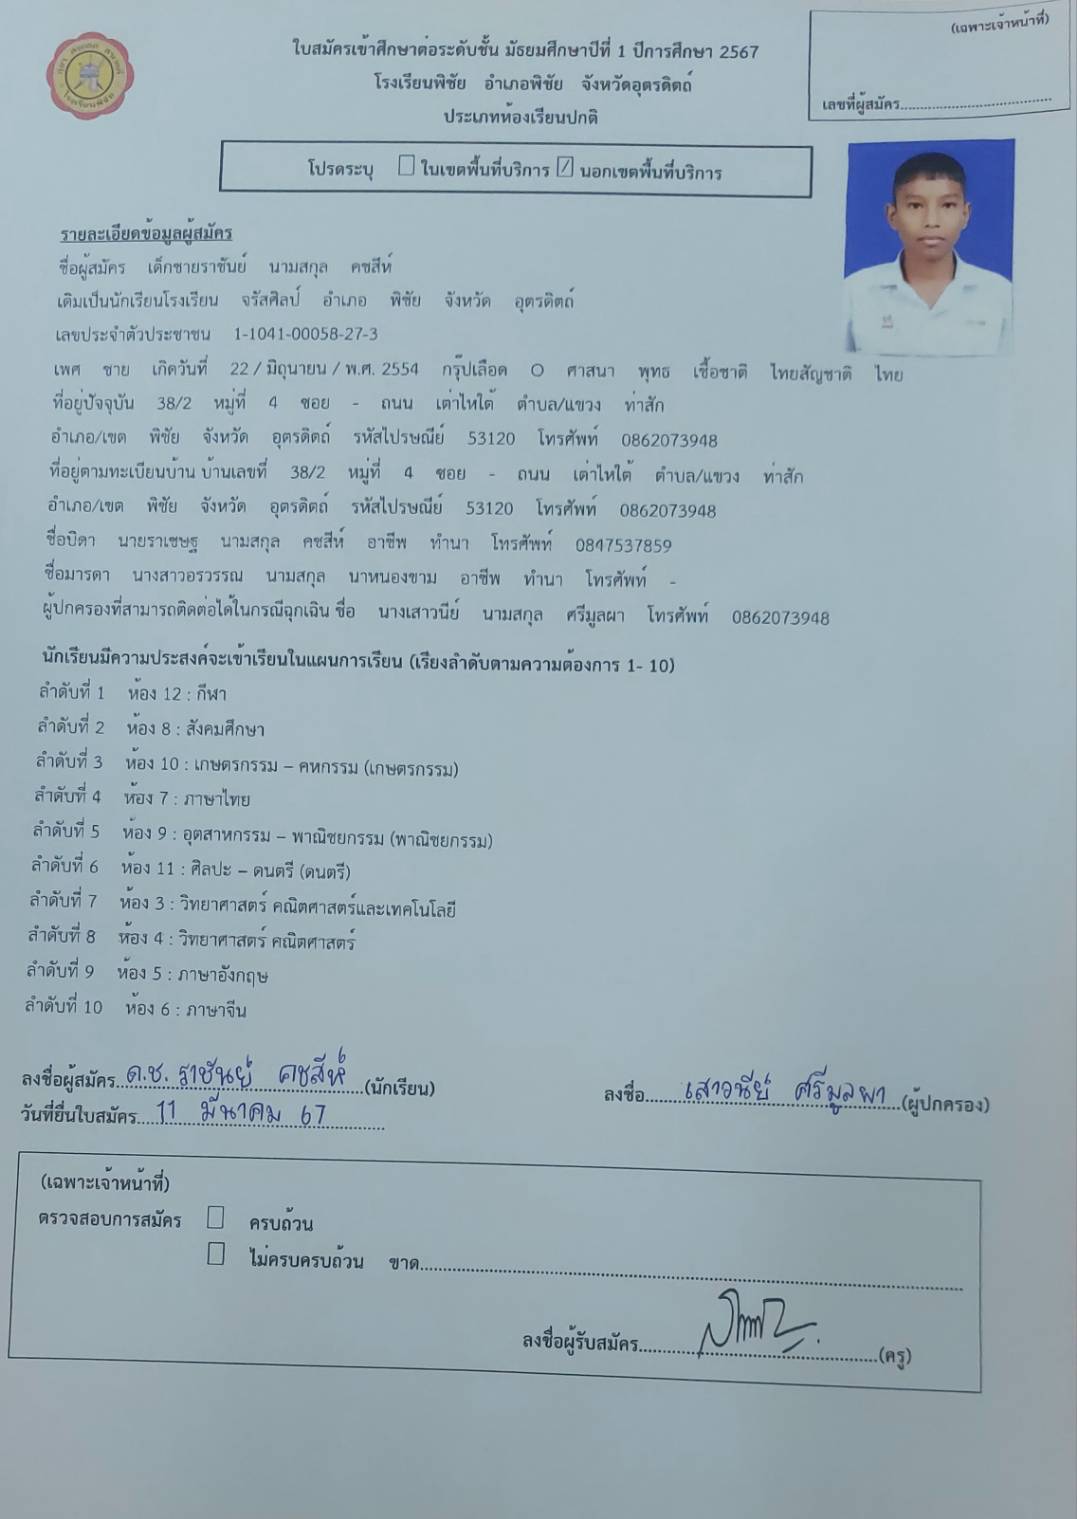 (เฉพาะเจ้าหน้าที่)
เลขที่ผู้สมัคร
ใบสมัครเข้าศึกษาต่อระดับชั้น มัธยมศึกษาปีที่ 1 ปีการศึกษา 2567
โรงเรียนพิชัย อำเภอพิชัย จังหวัดอุตรดิตถ์
ประเภทห้องเรียนปกติ
โปรดระบุ ☐ ในเขตพื้นที่บริการ ☑ นอกเขตพื้นที่บริการ
รายละเอียดข้อมูลผู้สมัคร
ชื่อผู้สมัคร เด็กชายราชันย์ นามสกุล คชสีห์
เดิมเป็นนักเรียนโรงเรียน จรัสศิลป์ อำเภอ พิชัย จังหวัด อุตรดิตถ์
เลขประจำตัวประชาชน 1-1041-00058-27-3
เพศ ชาย เกิดวันที่ 22 / มิถุนายน / พ.ศ. 2554 กรุ๊ปเลือด O ศาสนา พุทธ เชื้อชาติ ไทยสัญชาติ ไทย
ที่อยู่ปัจจุบัน 38/2 หมู่ที่ 4 ซอย - ถนน เต่าไหใต้ ตำบล/แขวง ท่าสัก
อำเภอ/เขต พิชัย จังหวัด อุตรดิตถ์ รหัสไปรษณีย์ 53120 โทรศัพท์ 0862073948
ที่อยู่ตามทะเบียนบ้าน บ้านเลขที่ 38/2 หมู่ที่ 4 ซอย - ถนน เต่าไหใต้ ตำบล/แขวง ท่าสัก
อำเภอ/เขต พิชัย จังหวัด อุตรดิตถ์ รหัสไปรษณีย์ 53120 โทรศัพท์ 0862073948
ชื่อบิดา นายราเชษฐ นามสกุล คชสีห์ อาชีพ ทำนา โทรศัพท์ 0847537859
ชื่อมารดา นางสาวอรวรรณ นามสกุล นาหนองขาม อาชีพ ทำนา โทรศัพท์ -
ผู้ปกครองที่สามารถติดต่อได้ในกรณีฉุกเฉิน ชื่อ นางเสาวนีย์ นามสกุล ศรีมูลผา โทรศัพท์ 0862073948
นักเรียนมีความประสงค์จะเข้าเรียนในแผนการเรียน (เรียงลำดับตามความต้องการ 1- 10)
ลำดับที่ 1 ห้อง 12 : กีฬา
ลำดับที่ 2 ห้อง 8 : สังคมศึกษา
ลำดับที่ 3 ห้อง 10 : เกษตรกรรม – คหกรรม (เกษตรกรรม)
ลำดับที่ 4 ห้อง 7 : ภาษาไทย
ลำดับที่ 5 ห้อง 9 : อุตสาหกรรม – พาณิชยกรรม (พาณิชยกรรม)
ลำดับที่ 6 ห้อง 11 : ศิลปะ – ดนตรี (ดนตรี)
ลำดับที่ 7 ห้อง 3 : วิทยาศาสตร์ คณิตศาสตร์และเทคโนโลยี
ลำดับที่ 8 ห้อง 4 : วิทยาศาสตร์ คณิตศาสตร์
ลำดับที่ 9 ห้อง 5 : ภาษาอังกฤษ
ลำดับที่ 10 ห้อง 6 : ภาษาจีน
ลงชื่อผู้สมัคร ด.ช. ราชันย์ คชสีห์ (นักเรียน) ลงชื่อ เสาวนีย์ ศรีมูลผา (ผู้ปกครอง)
วันที่ยื่นใบสมัคร 11 มีนาคม 67
(เฉพาะเจ้าหน้าที่)
ตรวจสอบการสมัคร ☐ ครบถ้วน
☐ ไม่ครบครบถ้วน ขาด
ลงชื่อผู้รับสมัคร (ครู)